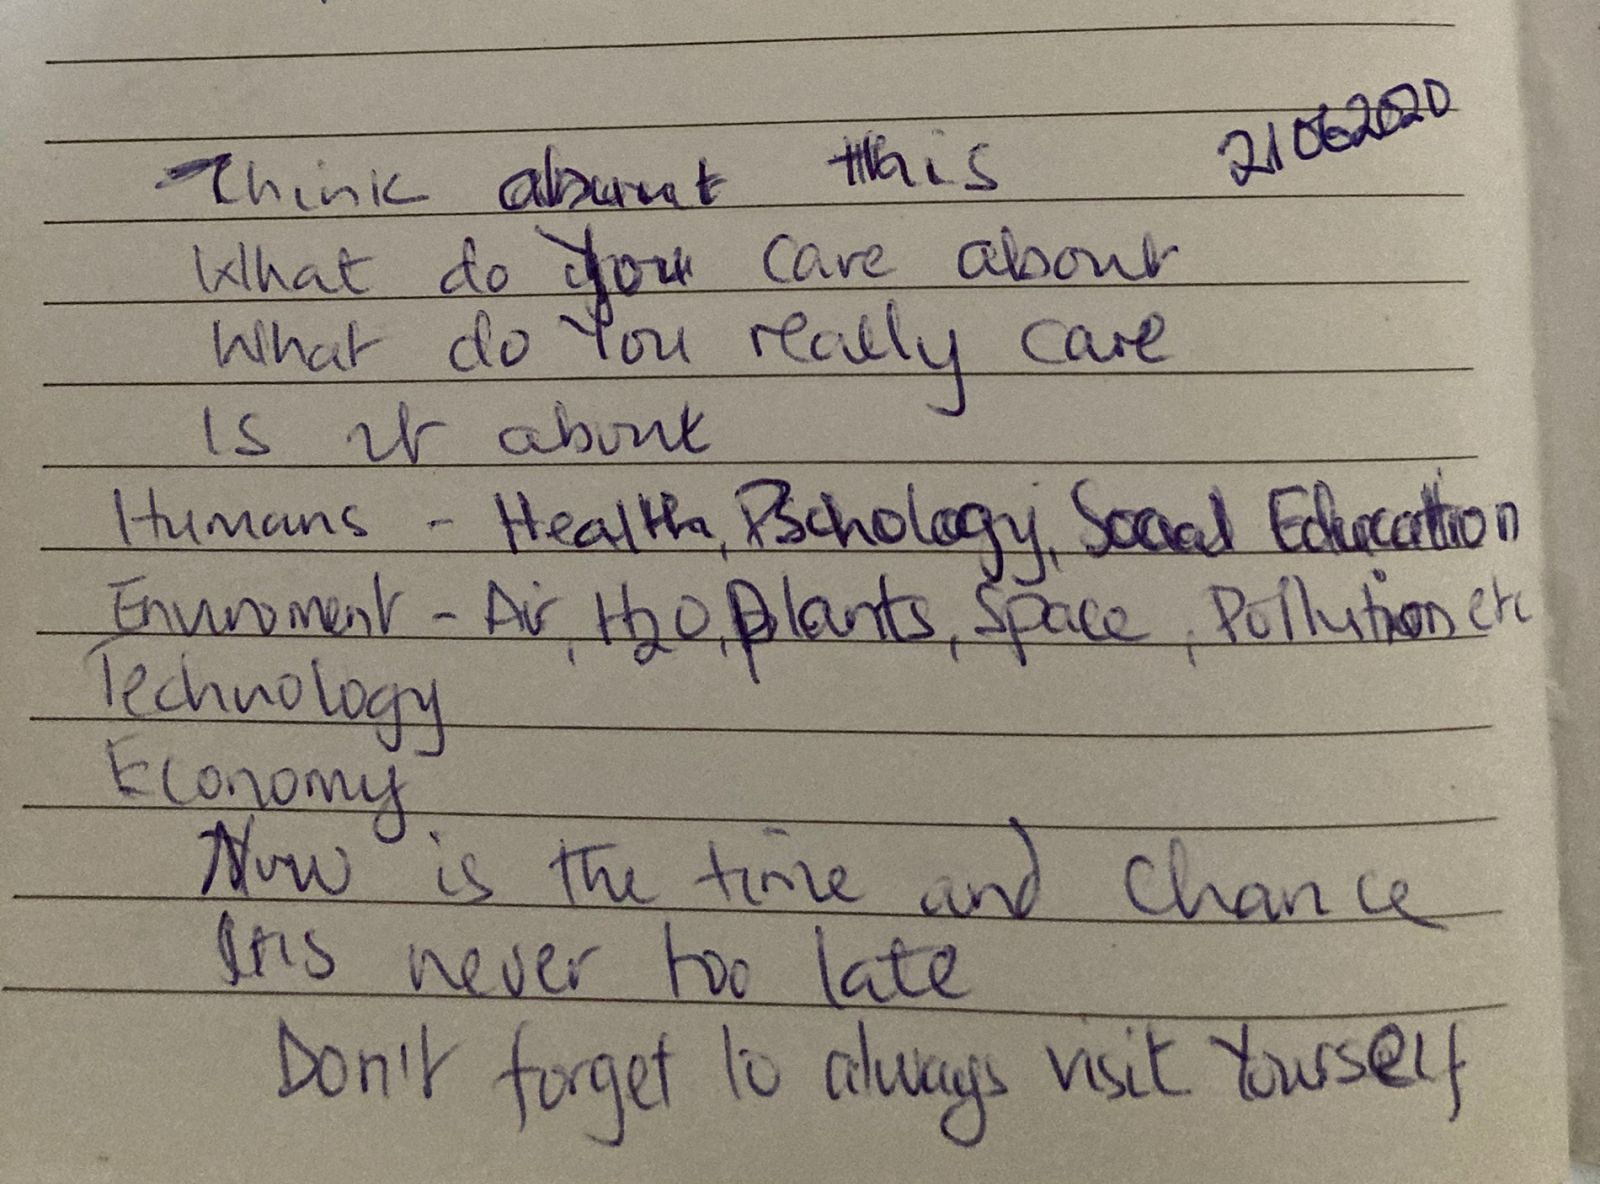 Think about this 21062020
What do you care about
What do You really care
Is it about
Humans - Health, Pschology, Social Education
Enviroment - Air, H2O, plants, Space, Pollution etc
Technology
Economy
Now is the time and Chance
It is never too late
Don't forget to always visit Yourself